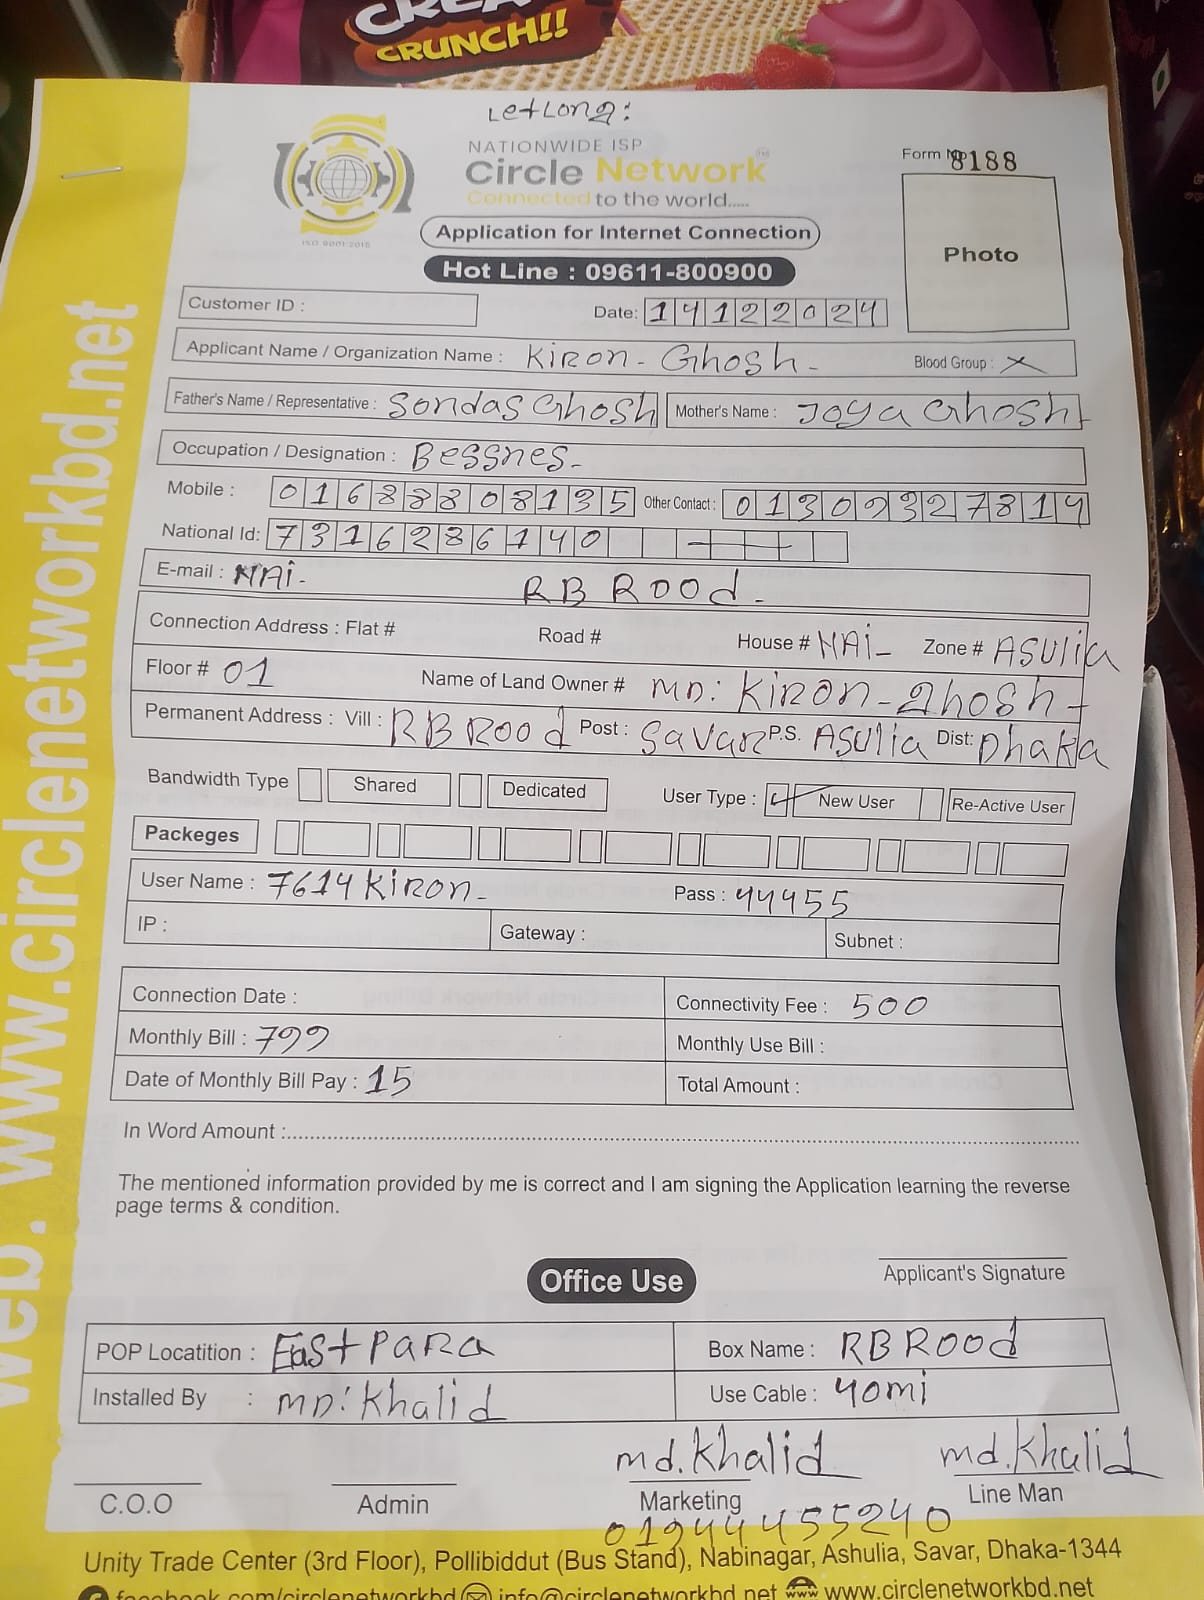 CREA
CRUNCH!!
LetLong:
NATIONWIDE ISP
Circle Network
Connected to the world.....
ISO 9001:2015
Form No 8188
Application for Internet Connection
Photo
Hot Line : 09611-800900
Customer ID :
Date: 14122024
Applicant Name / Organization Name : Kiron - Ghosh - Blood Group : X
Father's Name / Representative : Sondas Ghosh Mother's Name : Joya Ghosh
Occupation / Designation : Bessnes-
Mobile : 01688808135 Other Contact : 01309327814
National Id: 7316286140
E-mail : NAi- RB ROOd-
Connection Address : Flat # Road # House # NAi- Zone # ASULia
Floor # 01 Name of Land Owner # MD: Kiron-Ghosh-
Permanent Address : Vill : RB ROOd Post : Savar P.S. ASULia Dist: Dhaka
Bandwidth Type Shared Dedicated User Type : New User Re-Active User
Packeges
User Name : 7614Kiron- Pass : 44455
IP : Gateway : Subnet :
Connection Date : Connectivity Fee : 500
Monthly Bill : 799 Monthly Use Bill :
Date of Monthly Bill Pay : 15 Total Amount :
In Word Amount :
The mentioned information provided by me is correct and I am signing the Application learning the reverse
page terms & condition.
Applicant's Signature
Office Use
POP Locatition : East PaRa Box Name : RB ROOd
Installed By : MD: Khalid Use Cable : 40mi
md.Khalid md.Khalid
C.O.O Admin Marketing Line Man
01944455240
Unity Trade Center (3rd Floor), Pollibiddut (Bus Stand), Nabinagar, Ashulia, Savar, Dhaka-1344
facebook.com/circlenetworkbd info@circlenetworkbd.net www.circlenetworkbd.net
web. www.circlenetworkbd.net